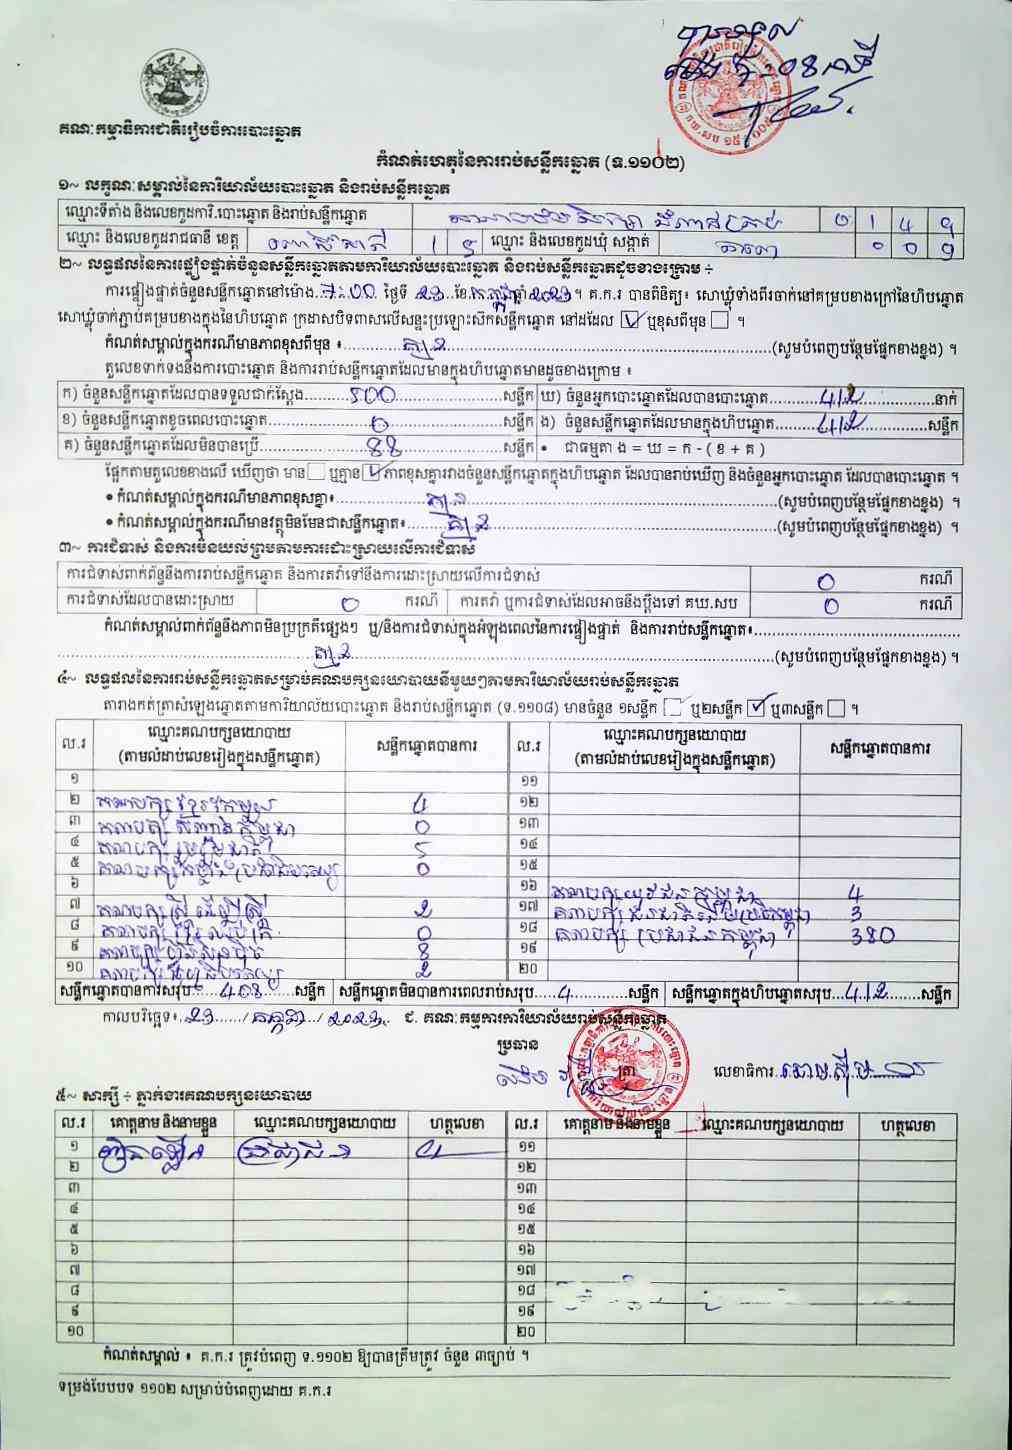 គណៈកម្មាធិការជាតិរៀបចំការបោះឆ្នោត
កំណត់ហេតុនៃការរាប់សន្លឹកឆ្នោត (ទ.១១០២)
១~ លក្ខណៈសម្គាល់នៃការិយាល័យបោះឆ្នោត និងរាប់សន្លឹកឆ្នោត
ឈ្មោះទីតាំង និងលេខកូដការិ.បោះឆ្នោត និងរាប់សន្លឹកឆ្នោត
ឈ្មោះ និងលេខកូដរាជធានី ខេត្ត ឈ្មោះ និងលេខកូដឃុំ សង្កាត់
២~ លទ្ធផលនៃការផ្ទៀងផ្ទាត់ចំនួនសន្លឹកឆ្នោតតាមការិយាល័យបោះឆ្នោត និងរាប់សន្លឹកឆ្នោតដូចខាងក្រោម ÷
ការផ្ទៀងផ្ទាត់ចំនួនសន្លឹកឆ្នោតនៅម៉ោង 7:00 ថ្ងៃទី 23 ខែ កក្កដា ឆ្នាំ 2023 ។ គ.ក.រ បានពិនិត្យ៖ សោឃ្លុំទាំងពីរចាក់នៅគម្របខាងក្រៅនៃហិបឆ្នោត
សោឃ្លុំចាក់ភ្ជាប់គម្របខាងក្នុងនៃហិបឆ្នោត ក្រដាសបិទពាសលើសន្ទះប្រឡោះស៊កសន្លឹកឆ្នោត នៅដដែល ☑ ឬខុសពីមុន ☐ ។
កំណត់សម្គាល់ក្នុងករណីមានភាពខុសពីមុន ៖ គ្មាន (សូមបំពេញបន្ថែមផ្នែកខាងខ្នង) ។
តួលេខទាក់ទងនឹងការបោះឆ្នោត និងការរាប់សន្លឹកឆ្នោតដែលមានក្នុងហិបឆ្នោតមានដូចខាងក្រោម ៖
ក) ចំនួនសន្លឹកឆ្នោតដែលបានទទួលជាក់ស្តែង 500 សន្លឹក ឃ) ចំនួនអ្នកបោះឆ្នោតដែលបានបោះឆ្នោត 412 នាក់
ខ) ចំនួនសន្លឹកឆ្នោតខូចពេលបោះឆ្នោត 0 សន្លឹក ង) ចំនួនសន្លឹកឆ្នោតដែលមានក្នុងហិបឆ្នោត 412 សន្លឹក
គ) ចំនួនសន្លឹកឆ្នោតដែលមិនបានប្រើ 88 សន្លឹក • ជាធម្មតា ង = ឃ = ក - ( ខ + គ )
ផ្អែកតាមតួលេខខាងលើ ឃើញថា មាន ☐ ឬគ្មាន ☑ ភាពខុសគ្នារវាងចំនួនសន្លឹកឆ្នោតក្នុងហិបឆ្នោត ដែលបានរាប់ឃើញ និងចំនួនអ្នកបោះឆ្នោត ដែលបានបោះឆ្នោត ។
• កំណត់សម្គាល់ក្នុងករណីមានភាពខុសគ្នា៖ គ្មាន (សូមបំពេញបន្ថែមផ្នែកខាងខ្នង) ។
• កំណត់សម្គាល់ក្នុងករណីមានវត្ថុមិនមែនជាសន្លឹកឆ្នោត៖ គ្មាន (សូមបំពេញបន្ថែមផ្នែកខាងខ្នង) ។
៣~ ការជំទាស់ និងការមិនយល់ព្រមតាមការដោះស្រាយលើការជំទាស់
ការជំទាស់ពាក់ព័ន្ធនឹងការរាប់សន្លឹកឆ្នោត និងការតវ៉ាទៅនឹងការដោះស្រាយលើការជំទាស់ 0 ករណី
ការជំទាស់ដែលបានដោះស្រាយ 0 ករណី ការតវ៉ា ឬការជំទាស់ដែលអាចនឹងប្តឹងទៅ គឃ.សប 0 ករណី
កំណត់សម្គាល់ពាក់ព័ន្ធនឹងភាពមិនប្រក្រតីផ្សេងៗ ឬ/និងការជំទាស់ក្នុងអំឡុងពេលនៃការផ្ទៀងផ្ទាត់ និងការរាប់សន្លឹកឆ្នោត៖
គ្មាន (សូមបំពេញបន្ថែមផ្នែកខាងខ្នង) ។
៤~ លទ្ធផលនៃការរាប់សន្លឹកឆ្នោតសម្រាប់គណបក្សនយោបាយនីមួយៗតាមការិយាល័យរាប់សន្លឹកឆ្នោត
តារាងកត់ត្រាសំឡេងឆ្នោតតាមការិយាល័យបោះឆ្នោត និងរាប់សន្លឹកឆ្នោត (ទ.១១០៨) មានចំនួន ១សន្លឹក ☐ ឬ២សន្លឹក ☑ ឬ៣សន្លឹក ☐ ។
ល.រ ឈ្មោះគណបក្សនយោបាយ (តាមលំដាប់លេខរៀងក្នុងសន្លឹកឆ្នោត) សន្លឹកឆ្នោតបានការ ល.រ ឈ្មោះគណបក្សនយោបាយ (តាមលំដាប់លេខរៀងក្នុងសន្លឹកឆ្នោត) សន្លឹកឆ្នោតបានការ
១ ១១
២ 4 ១២
៣ 0 ១៣
៤ 5 ១៤
៥ 0 ១៥
៦ ១៦ គណបក្សយុវជនកម្ពុជា 4
៧ គណបក្សស្ត្រីដើម្បីស្ត្រី 2 ១៧ 3
៨ 0 ១៨ គណបក្សប្រជាជនកម្ពុជា 380
៩ 8 ១៩
១០ 2 ២០
សន្លឹកឆ្នោតបានការសរុប 408 សន្លឹក សន្លឹកឆ្នោតមិនបានការពេលរាប់សរុប 4 សន្លឹក សន្លឹកឆ្នោតក្នុងហិបឆ្នោតសរុប 412 សន្លឹក
កាលបរិច្ឆេទ៖ 23 / កក្កដា / 2023 ៩. គណៈកម្មការការិយាល័យរាប់សន្លឹកឆ្នោត
ប្រធាន
ត្រា លេខាធិការ
៥~ សាក្សី ÷ ភ្នាក់ងារគណបក្សនយោបាយ
ល.រ គោត្តនាម និងនាមខ្លួន ឈ្មោះគណបក្សនយោបាយ ហត្ថលេខា ល.រ គោត្តនាម និងនាមខ្លួន ឈ្មោះគណបក្សនយោបាយ ហត្ថលេខា
១ ប្រជាជន ១១
២ ១២
៣ ១៣
៤ ១៤
៥ ១៥
៦ ១៦
៧ ១៧
៨ ១៨
៩ ១៩
១០ ២០
កំណត់សម្គាល់ ៖ គ.ក.រ ត្រូវបំពេញ ទ.១១០២ ឱ្យបានត្រឹមត្រូវ ចំនួន ៣ច្បាប់ ។
ទម្រង់បែបបទ ១១០២ សម្រាប់បំពេញដោយ គ.ក.រ